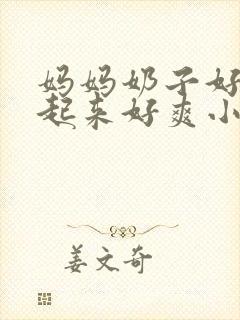 妈妈奶子好
起来好爽小
姜文奇